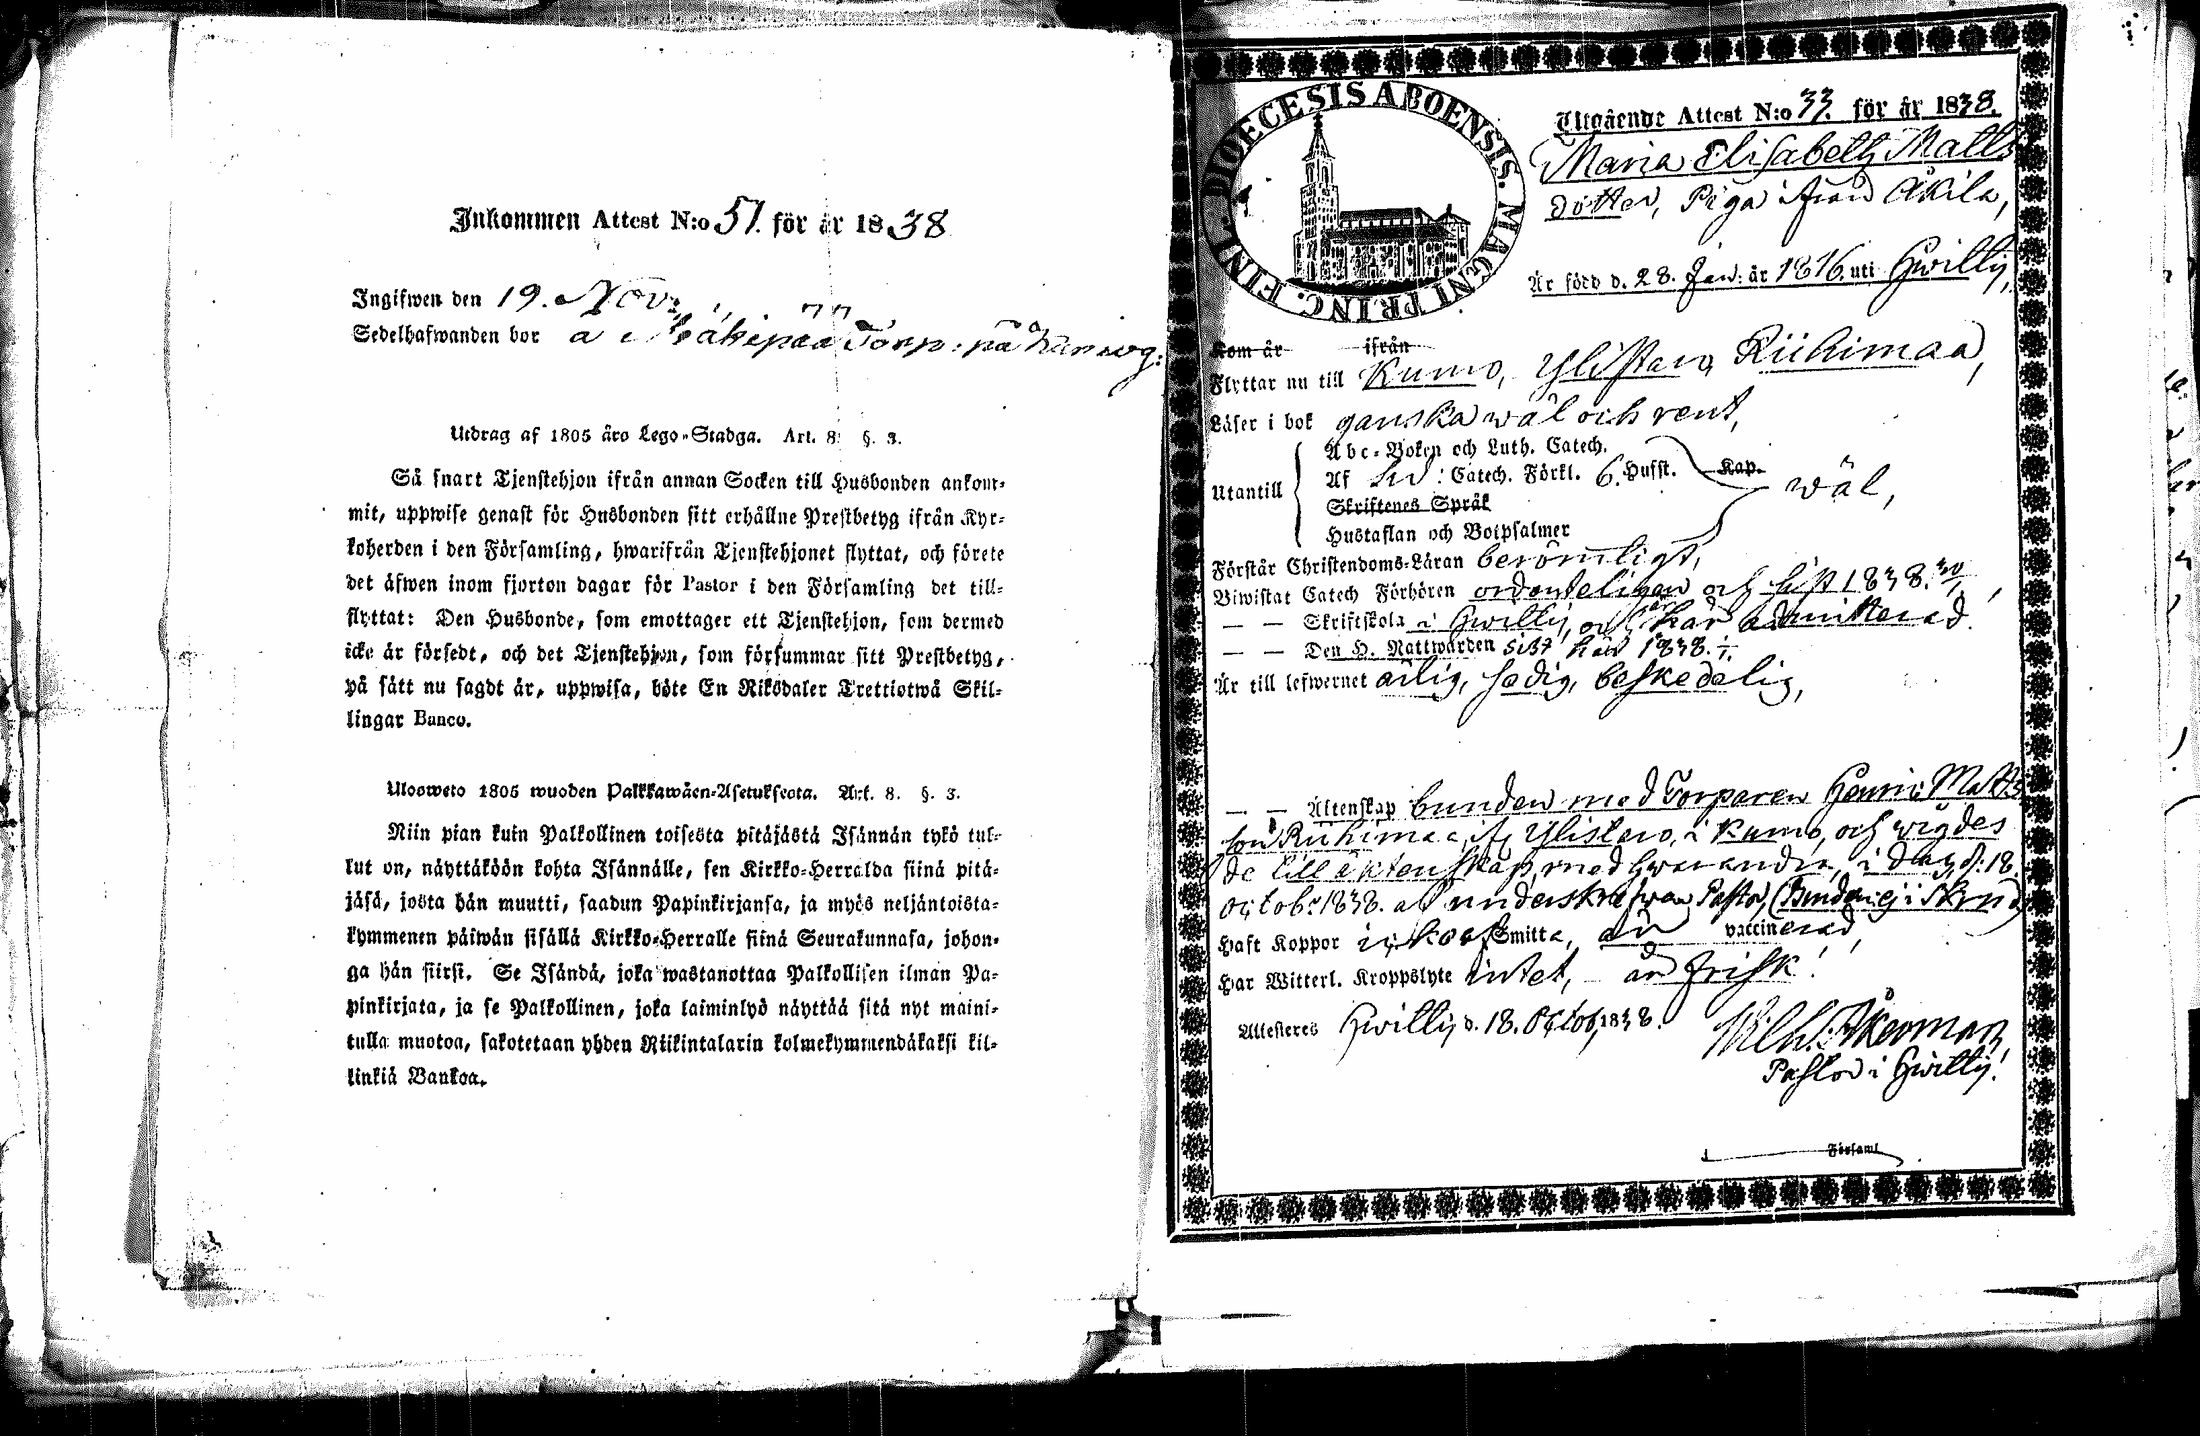 Inkommen Attest N:o 51. för år 1838
Ingifwen den 19. Nov:
Sedelhafwanden bor å Mäkipää Torp: på
Utdrag af 1805 års Lego-Stadga. Art. 8. §. 3.
Så snart Tjenstehjon ifrån annan Socken till Husbonden ankom-
mit, uppwise genast för Husbonden sitt erhållne Prestbetyg ifrån Kyr-
koherden i den Församling, hwarifrån Tjenstehjonet flyttat, och förete
det äfwen inom fjorton dagar för Pastor i den Församling det till-
flyttat: Den Husbonde, som emottager ett Tjenstehjon, som dermed
icke är försedt, och det Tjenstehjon, som försummar sitt Prestbetyg,
på sått nu sagdt är, uppwisa, böte En Riksdaler Trettiotwå Skil-
lingar Banco.
Ulosweto 1805 wuoden Palkkawäen-Asetuksesta. Art. 8. §. 3.
Niin pian kuin Palkollinen toisesta pitäjästä Isännän tykö tul-
lut on, näyttäköön kohta Isännälle, sen Kirkko-Herralda siinä pitä-
jäsä, josta hän muutti, saadun Papinkirjansa, ja myös neljäntoista-
kymmenen päiwän sisällä Kirkko-Herralle siinä Seurakunnasa, johon-
ga hän siirsi. Se Isändä, joka wastanottaa Palkollisen ilman Pa-
pinkirjata, ja se Palkollinen, joka laiminlyö näyttää sitä nyt maini-
tulla muotoa, sakotetaan yhden Riikintalarin kolmekymmendäkaksi kil-
linkiä Bankoa.
DIOECESIS ABOENSIS. MAGNI PRINC. FINL.
Utgående Attest N:o 33. för år 1838.
Maria Elisabeth Matts
dotter, Piga ifrån Äkilä,
Är född d. 28. Jan: år 1816. uti Hwittis,
Kom år ifrån
Flyttar nu till Kumo, Ylistaro, Riihimaa,
Läser i bok ganska wäl och rent,
Utantill
Abc-Boken och Luth. Catech.
Af Sv: Catech. Förkl. 6. Hufst. Kap. wäl,
Skriftenes Språk
Hustaflan och Botpsalmer
Förstår Christendoms-Läran berömligt,
Biwistat Catech Förhören ordenteligen och sist 1838.
— — Skriftskola i Hwittis, och är här admitterad.
— — Den H. Nattwarden sist här 1838.
Är till lefwernet ärlig, sedig, beskedelig,
— — Äktenskap bunden med Torparen Henric Matts
son Riihimaa af Ylistaro, i Kumo, och wigdes
de till äktenskap med hwarandra i dag d: 18.
octob: 1838. af underskrefwen Pastor,
Haft Koppor Smitta, är vaccinerad,
Har Witterl. Kroppslyte intet, är frisk!
Attesteres Hwittis d. 18. Octob: 1838.
Wilh. Åkerman,
Pastor i Hwittis!
Församl